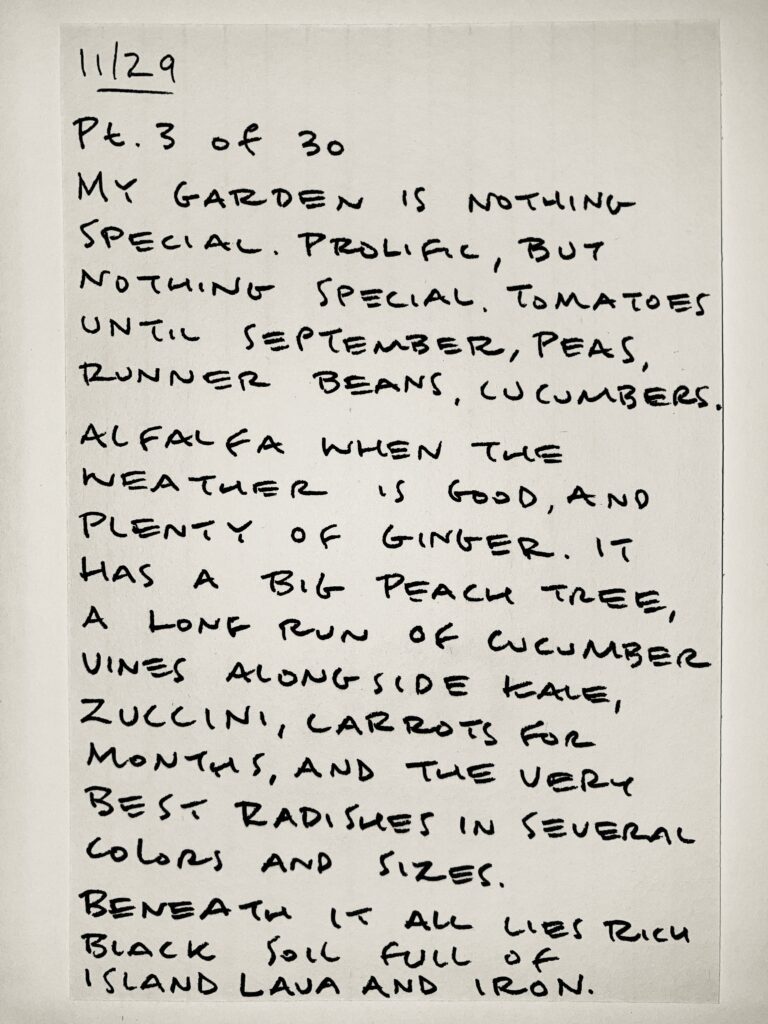 11/29
Pt. 3 of 30
MY GARDEN IS NOTHING
SPECIAL. PROLIFIC, BUT
NOTHING SPECIAL. TOMATOES
UNTIL SEPTEMBER, PEAS,
RUNNER BEANS, CUCUMBERS.
ALFALFA WHEN THE
WEATHER IS GOOD, AND
PLENTY OF GINGER. IT
HAS A BIG PEACH TREE,
A LONG RUN OF CUCUMBER
VINES ALONGSIDE KALE,
ZUCCINI, CARROTS FOR
MONTHS, AND THE VERY
BEST RADISHES IN SEVERAL
COLORS AND SIZES.
BENEATH IT ALL LIES RICH
BLACK SOIL FULL OF
ISLAND LAVA AND IRON.